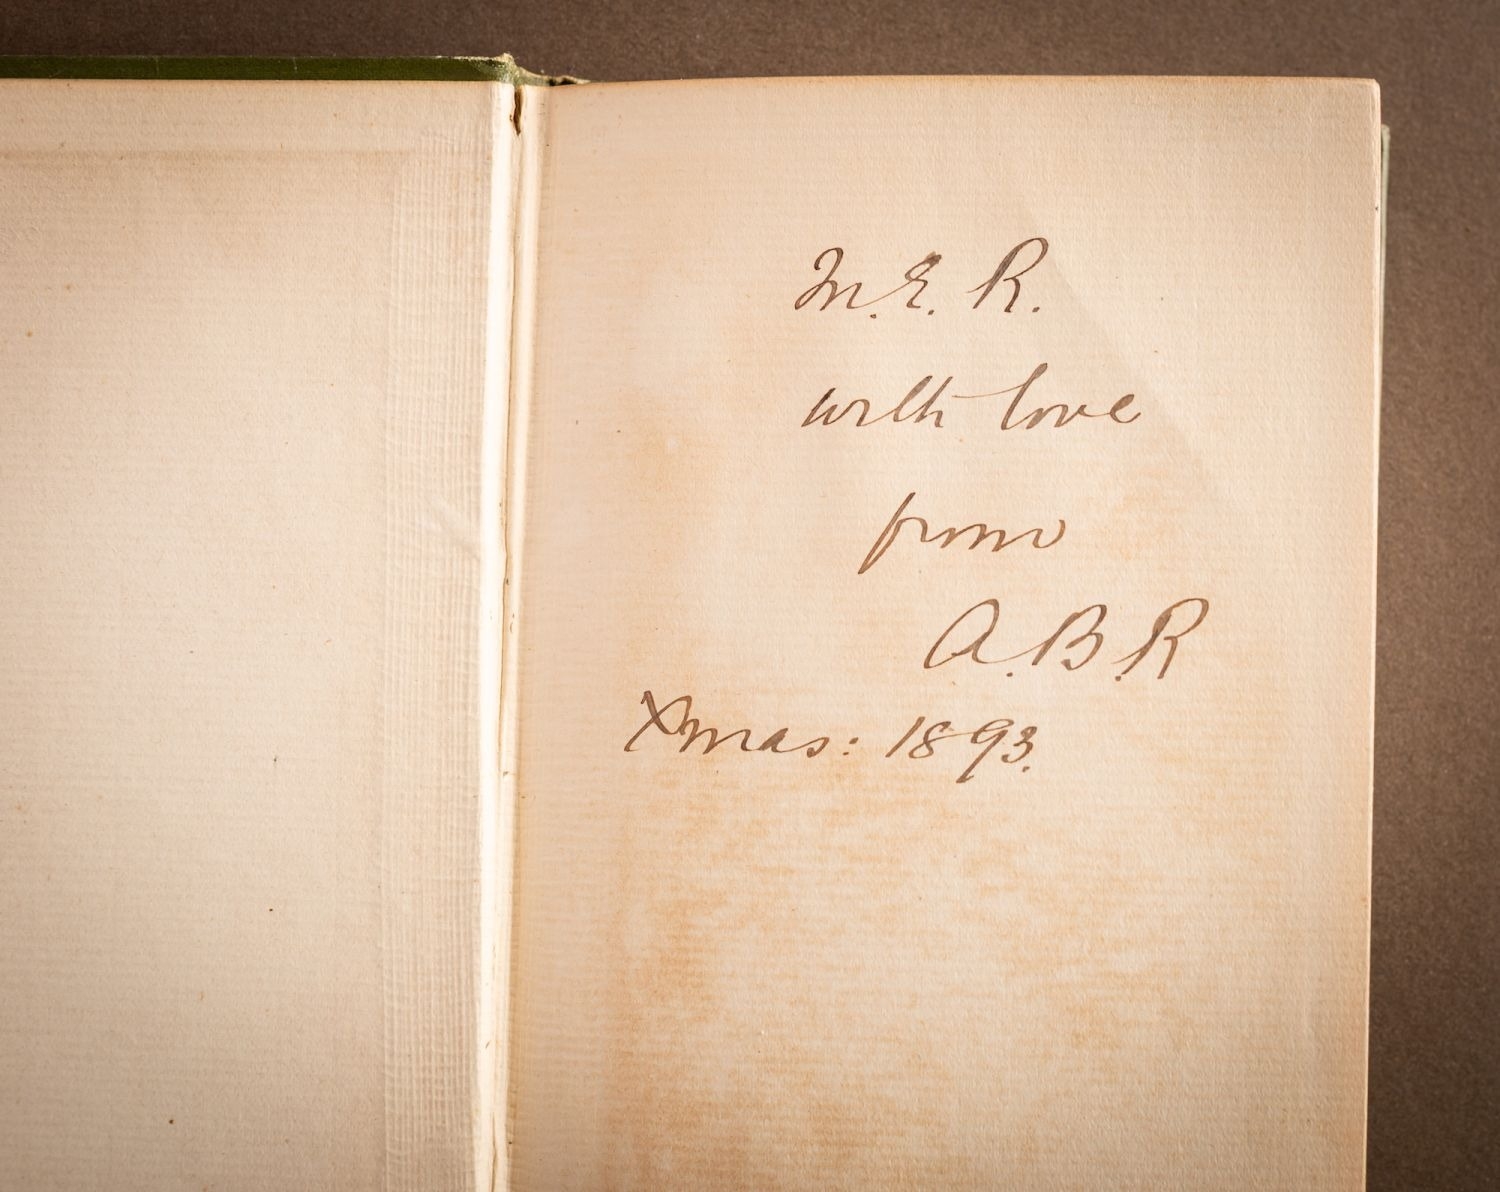 M. E. R.
with love
from
A. B. R
Xmas: 1893.